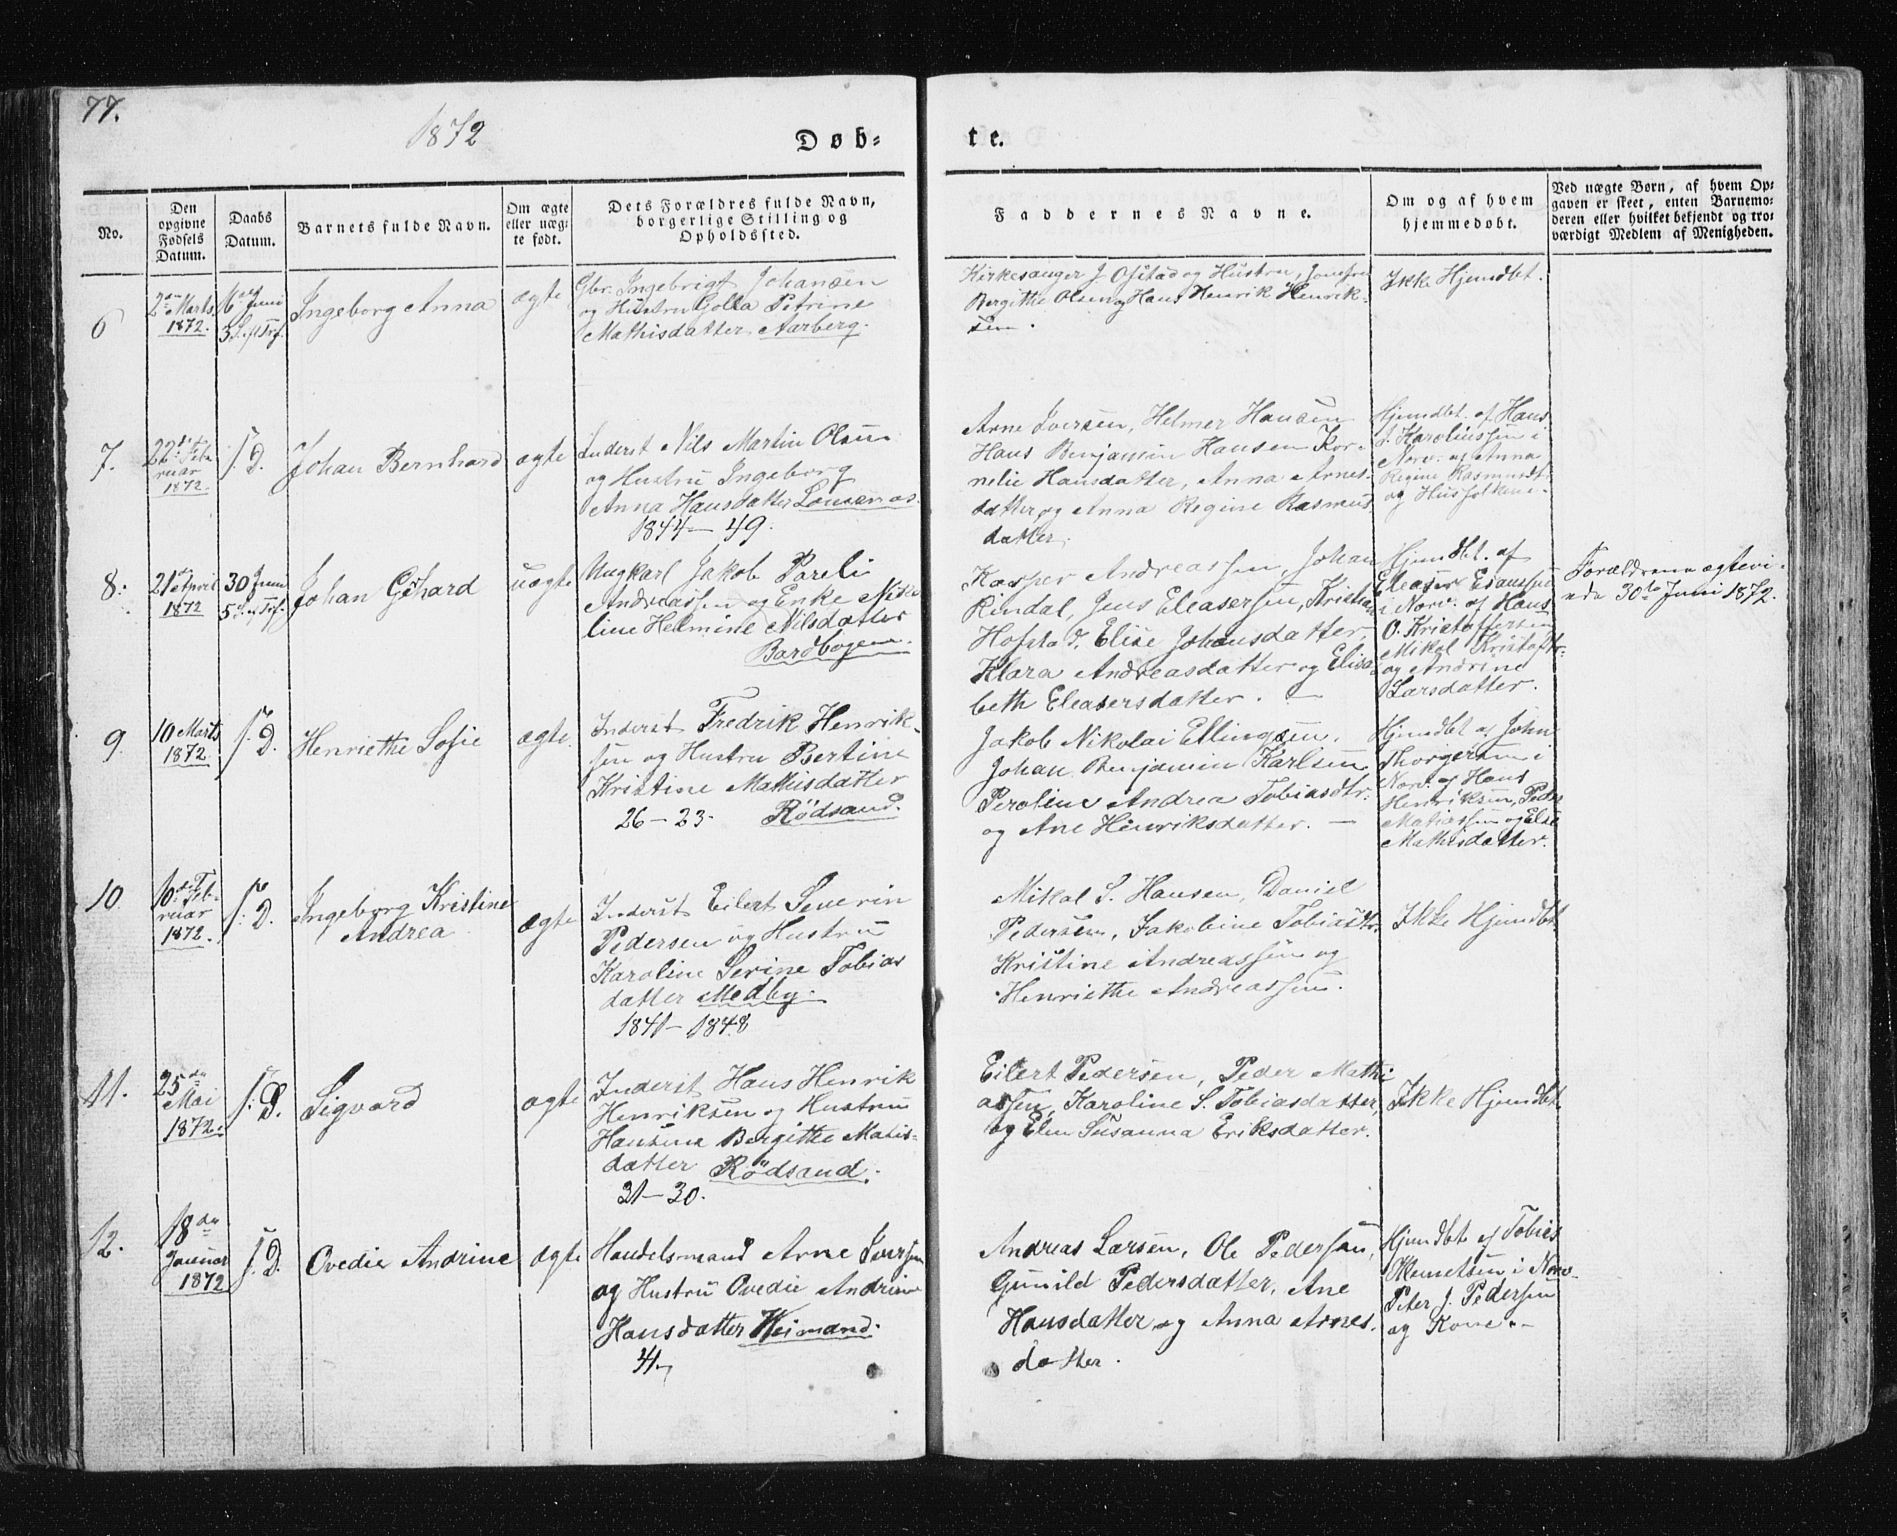 77.
1872
Døb-
te.
No.
Den opgivne Fødsels Datum.
Daabs Datum.
Barnets fulde Navn.
Om ægte eller uæg-te født.
Dets Forældres fulde Navn, borgerlige Stilling og Opholdssted.
Faddernes Navne.
Om og af hvem hjemmedøbt.
Ved uægte Børn, af hvem Op-gaven er skeet, enten Barnemo-deren eller hvilket bekjendt og tro-værdigt Medlem af Menigheden.
6
2den Marts
1872.
16 Juni
Ingeborg Anna
ægte
Gbr. Ingebrigt Johansen
og Hustru Golla Petrine
Mathisdatter Aarberg.
Kirkesanger J. Ofstad og Hustru, Jomfru
Bergitte Olsen og Hans Henrik Henrik-
sen.
Ikke Hjemdbt.
7.
22de Feb-
ruar
1872.
J. D.
Johan Bernhard
ægte
Inderst Nils Martin Olsen
og Hustru Ingeborg
Anna Hansdatter
1844 – 49.
Arne Iversen, Helmer Hansen
Hans Benjamin Hansen Kor-
nelie Hansdatter, Anna Arnes-
datter og Anna Regine Rasmus
datter.
Hjemdbt. af Hans
J. Karoliussen i
Nærv. af Anna
Regine Rasmusdt.
og Husfolkene.
8.
21de April
1872
30 Juni
Johan Gerhard
uægte
Ungkarl Jakob Pareli
Andreassen og Enke Niko
line Helmine Nilsdatter
Bardbogen.
Kasper Andreassen, Johan
Rindal, Jens Eleasersen, Kristian
Hofstad, Elise Johansdatter,
Klara Andreasdatter og Elisa
beth Eleasersdatter. –
Hjemdbt. af
Eleaser Esaussen
i Nærv. af Hans
O. Kristoffersen
Mikal Kristoffr.
og Andrine
Larsdatter.
Forældrene ægtevi-
ede 30te Juni 1872.
9.
10 Marts
1872.
J. D.
Henriethe Sofie
ægte.
Inderst Fredrik Henrik-
sen og Hustru Bertine
Kristine Mathisdatter
26 – 23. Rödsand.
Jakob Nikolai Ellingsen,
Johan Benjamin Karlsen
Peroline Andrea Tobiasdtr.
og Ane Henriksdatter. –
Hjemdbt af John
Thorgersen i
Nærv. af Hans
Henriksen, Peder
Matiassen og Else
Mathisdatter.
10.
10de Feb-
ruar
1872.
J. D.
Ingeborg Kristine
Andrea
ægte
Inderst Eilert Severin
Pedersen og Hustru
Karoline Serine Tobias
datter Medby.
1841 – 1848
Mikal S. Hansen, Daniel
Pedersen, Jakobine Tobiasdtr.
Kristine Andreassen og
Henriethe Andreassen.
Ikke Hjemdbt
11.
25de
Mai
1872.
J. D.
Sigvard
ægte
Inderst Hans Henrik
Henriksen og Hustru
Hansina Bergitte Matis-
datter Rödsand.
31 – 30.
Eilert Pedersen, Peder Mathi
assen, Karoline S. Tobiasdatter,
og Elen Susanna Eriksdatter.
Ikke Hjemdbt
12.
18de
Januar
1872
J. D.
Ovedie Andrine
ægte
Handelsmand Arne Iversen
og Hustru Ovedie Andrine
Hansdatter Heimand.
41
Andreas Larsen, Ole Pedersen,
Gunild Pedersdatter, Ane
Hansdatter og Anna Arnes
datter.
Hjemdbt af Tobias
Klemetsen i Nærv.
Peter J. Pedersen
og Kone.